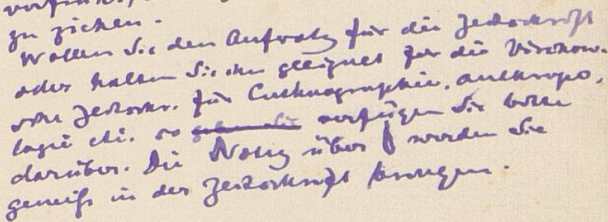 zu ziehen.
Wollen Sie den Aufsatz für die Zeitschrift
oder halten Sie ihn geeignet für die Virchow-
sche Zeitschr. für Ethnographie, Anthropo-
logie etc. so verfügen Sie bitte
darüber. Die Notiz über werden Sie
gewiß in der Zeitschrift bringen.